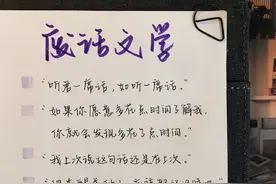 废话文学
"听君一席话，如听一席话。"
"如果你愿意多花点时间了解我，
你就会发现多花了点时间。"
"我上次说这句话还是在上次。"